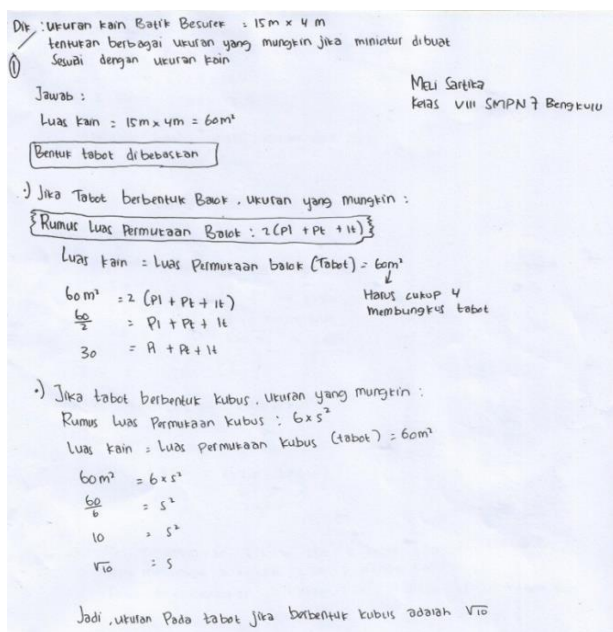 Dik : ukuran kain Batik Besurek : 15 m x 4 m
tentukan berbagai ukuran yang mungkin jika miniatur dibuat
① Sesuai dengan ukuran kain
Meli Sartika
Kelas VIII SMPN 7 Bengkulu
Jawab :
Luas kain = 15m x 4m = 60m²
Bentuk tabot dibebaskan
•) Jika Tabot berbentuk Balok , ukuran yang mungkin :
Rumus Luas Permukaan Balok : 2 (Pl + Pt + lt)
Luas kain = Luas Permukaan balok (Tabot) = 60m²
↓
Harus cukup 4
membungkus tabot
60 m² = 2 (Pl + Pt + lt)
60/2 = Pl + Pt + lt
30 = Pl + Pt + lt
•) Jika tabot berbentuk kubus , ukuran yang mungkin :
Rumus Luas Permukaan kubus : 6 x s²
Luas kain = Luas Permukaan kubus (tabot) = 60m²
60 m² = 6 x s²
60/6 = s²
10 = s²
√10 = s
Jadi , ukuran Pada tabot jika berbentuk kubus adalah √10